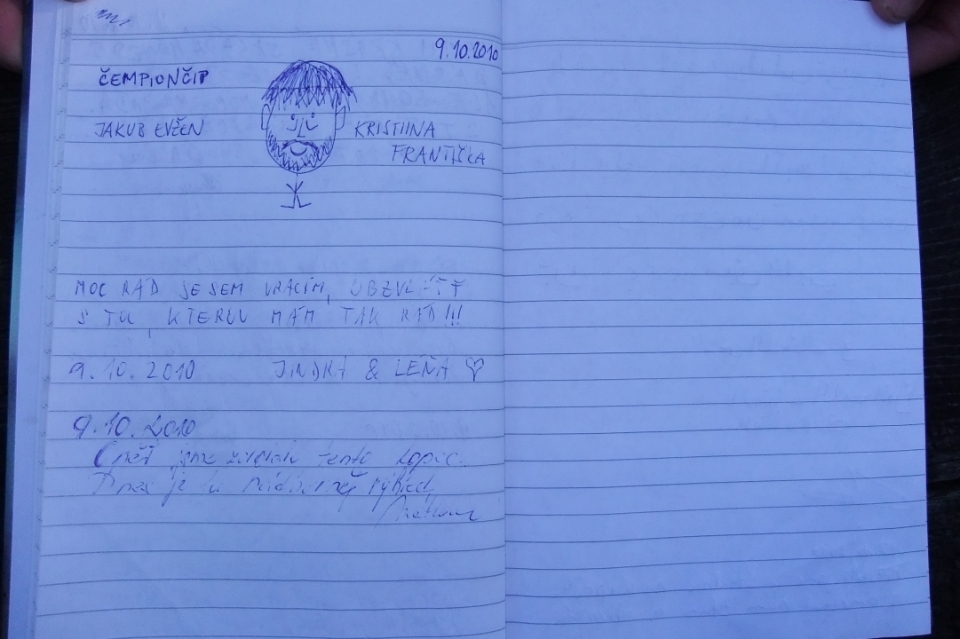 9.10.2010
ČEMPIONČIP
JAKUB EVŽEN KRISTIINA
FRANTIŠKA
MOC RÁD SE SEM VRACÍM, OBZVLÁŠŤ
S TOU, KTEROU MÁM TAK RÁD!!!
9.10.2010 JINDRA & LEŇA
9.10.2010
Opět jsme zdolali tento kopec.
Dnes je tu nádherný výhled